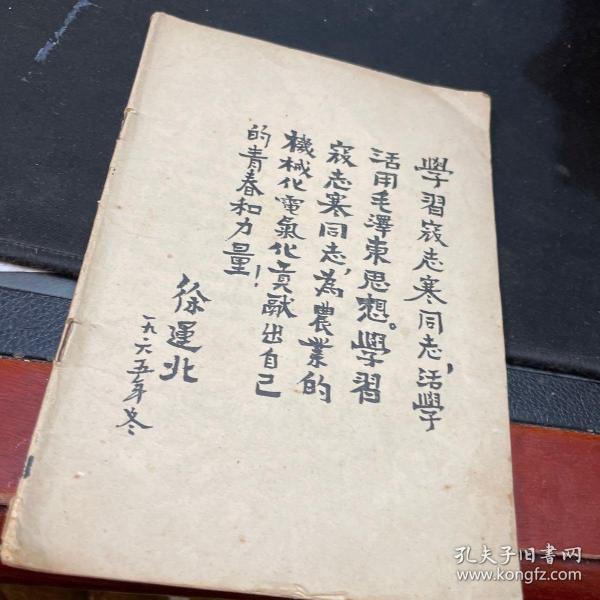 學習寇志寒同志，活學
活用毛澤東思想。學習
寇志寒同志，為農業的
機械化電氣化貢献出自己
的青春和力量！
徐運北
一九六五年冬
孔夫子旧書网
www.kongfz.com